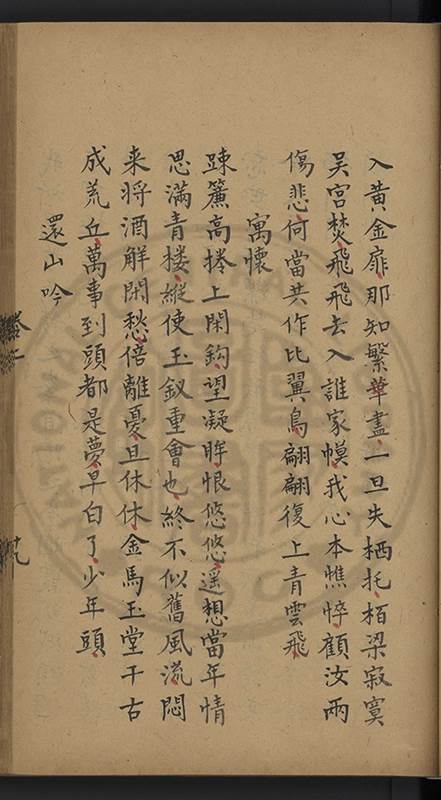 入黄金扉那知繁華盡一旦失栖托栢梁寂寞
吴宫焚飛飛去入誰家幙我心本憔悴顧汝兩
傷悲何當共作比翼鳥翩翩復上青雲飛
寓懷
踈簾高捲上閑鈎望凝眸恨悠悠遥想當年情
思滿青楼縱使玉釵重會也終不似舊風流悶
来将酒解閑愁倍離憂且休休金馬玉堂千古
成荒丘萬事到頭都是夢早白了少年頭
還山吟